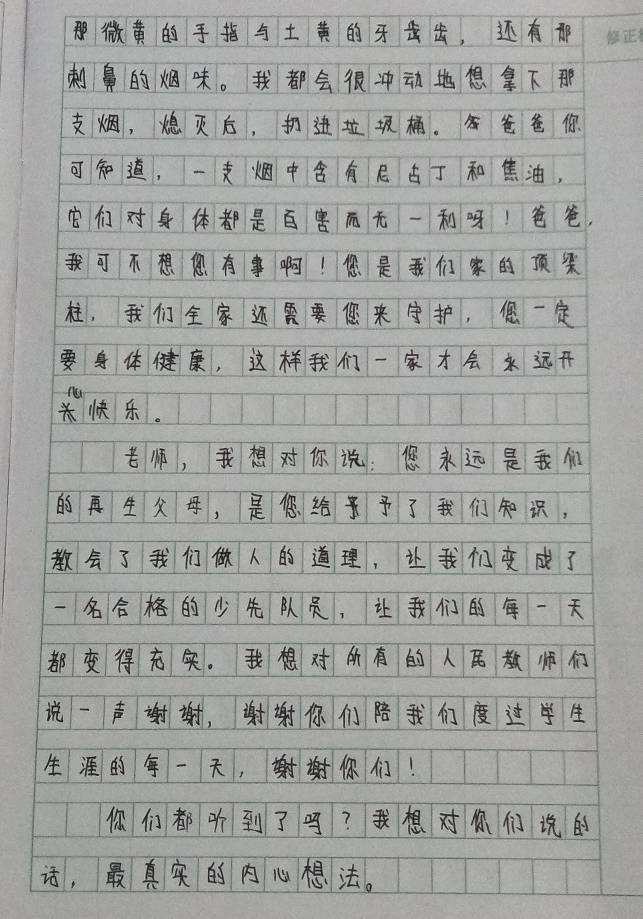 那微黄的手指与土黄的牙齿齿，还有那
修正
刺鼻的烟味。我都会很冲动地想拿下那
支烟，熄灭后，扔进垃圾桶。爸爸你
可知道，一支烟中含有尼古丁和焦油，
它们对身体都是百害而无一利呀！爸爸，
我可不想您有事啊！您是我们家的顶梁
柱，我们全家还需要您来守护，您一定
要身体健康，这样我们一家才会永远开
心快乐。
老师，我想对你说：您永远是我们
的再生父母，是您给予了我们知识，
教会了我们做人的道理，让我们变成了
一名合格的少先队员，让我们的每一天
都变得充实。我想对所有的人民教师们
说一声谢谢，谢谢你们陪我们度过学生
生涯的每一天，谢谢你们！
你们都听到了吗？我想对你们说的
话，最真实的内心想法。